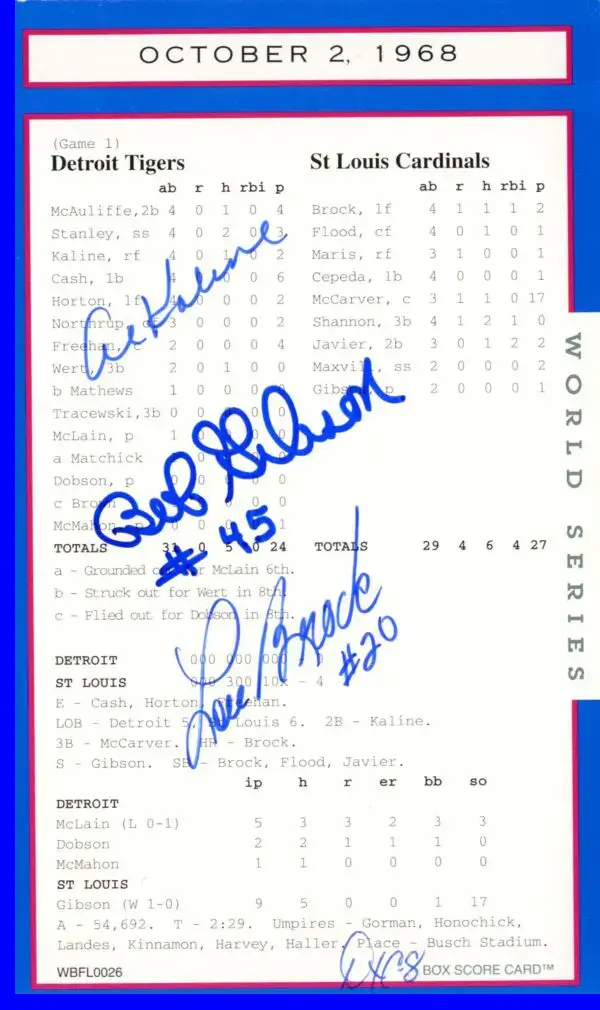 OCTOBER 2, 1968
(Game 1)
Detroit Tigers
ab r h rbi p
McAuliffe,2b 4 0 1 0 4
Stanley, ss 4 0 2 0 3
Kaline, rf 4 0 1 0 2
Cash, 1b 4 0 0 0 6
Horton, lf 4 0 0 0 2
Northrup, cf 3 0 0 0 2
Freehan, c 2 0 0 0 4
Wert, 3b 2 0 1 0 0
b Mathews 1 0 0 0 0
Tracewski,3b 0 0 0 0 0
McLain, p 1 0 0 0
a Matchick 0 0
Dobson, p 0
c Brown
McMahon, p 0 0 0 1
TOTALS 31 0 5 0 24
a - Grounded out for McLain 6th.
b - Struck out for Wert in 8th.
c - Flied out for Dobson in 8th.
St Louis Cardinals
ab r h rbi p
Brock, lf 4 1 1 1 2
Flood, cf 4 0 1 0 1
Maris, rf 3 1 0 0 1
Cepeda, 1b 4 0 0 0 1
McCarver, c 3 1 1 0 17
Shannon, 3b 4 1 2 1 0
Javier, 2b 3 0 1 2 2
Maxvill, ss 2 0 0 0 2
Gibson, p 2 0 0 0 1
TOTALS 29 4 6 4 27
Al Kaline
Bob Gibson
# 45
Lou Brock
#20
WORLD SERIES
DETROIT 000 000 000 0
ST LOUIS 000 300 10x - 4
E - Cash, Horton, Freehan.
LOB - Detroit 5, St Louis 6. 2B - Kaline.
3B - McCarver. HR - Brock.
S - Gibson. SB - Brock, Flood, Javier.
ip h r er bb so
DETROIT
McLain (L 0-1) 5 3 3 2 3 3
Dobson 2 2 1 1 1 0
McMahon 1 1 0 0 0 0
ST LOUIS
Gibson (W 1-0) 9 5 0 0 1 17
A - 54,692. T - 2:29. Umpires - Gorman, Honochick,
Landes, Kinnamon, Harvey, Haller. Place - Busch Stadium.
WBFL0026
BOX SCORE CARD™